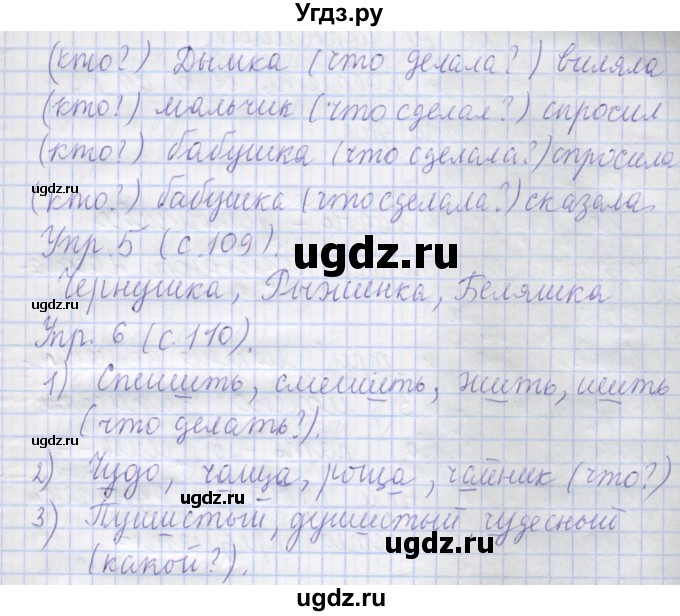 Угдз.ру
(кто?) Дымка (что делала?) виляла
(кто?) мальчик (что сделал?) спросил
(кто?) бабушка (что сделала?) спросила
ugdz.ru
(кто?) бабушка (что сделала?) сказала
Упр. 5 (с. 109).
ugdz.ru
Чернушка, Рыжинка, Беляшка
ugdz.ru
Упр. 6 (с. 110).
1) Спешить, смешить, жить, шить
(что делать?).
ugdz.ru
2) Чудо, чаща, роща, чайник (что?)
ugdz.ru
3) Пушистый, душистый, чудесный
ugdz.ru
(какой?).
ugdz.ru